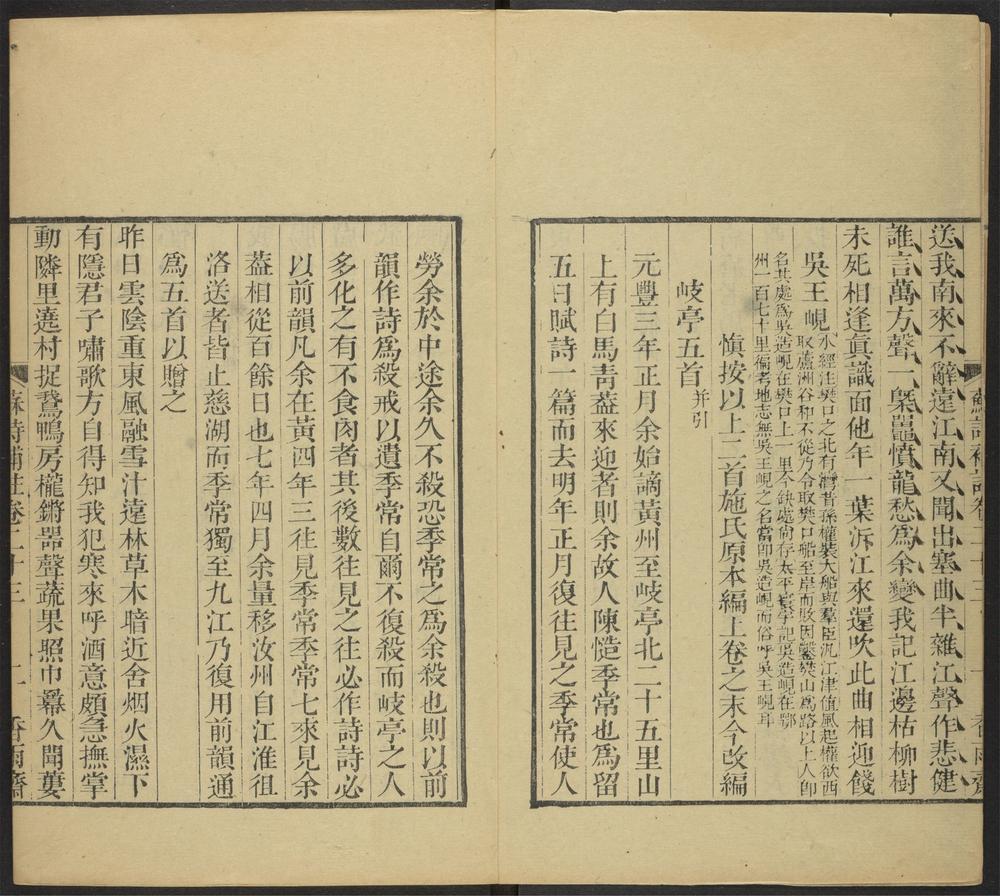 送我南來不辭遠江南又聞出塞曲半雜江聲作悲健
誰言萬方聲一槩鼉憤龍愁爲余變我記江邊枯柳樹
未死相逢眞識面他年一葉泝江來還吹此曲相迎餞
吳王峴水經注樊口之北有灣昔孫權裝大船與羣臣汎江津值風起權欲西
取蘆洲谷利不從乃令取樊口船至岸而敗因鑿樊山爲路以上人卽
名其處爲吳造峴在樊口上一里今缺處尙存太平寰宇記吳造峴在鄂
州一百七十里徧考地志無吳王峴之名當卽吳造峴而俗呼吳王峴耳
愼按以上二首施氏原本編上卷之末今改編
岐亭五首并引
元豐三年正月余始謫黃州至岐亭北二十五里山
上有白馬靑葢來迎者則余故人陳慥季常也爲留
五日賦詩一篇而去明年正月復往見之季常使人
勞余於中途余久不殺恐季常之爲余殺也則以前
韻作詩爲殺戒以遺季常自爾不復殺而岐亭之人
多化之有不食肉者其後數往見之往必作詩詩必
以前韻凡余在黃四年三往見季常季常七來見余
葢相從百餘日也七年四月余量移汝州自江淮徂
洛送者皆止慈湖而季常獨至九江乃復用前韻通
爲五首以贈之
昨日雲陰重東風融雪汁遠林草木暗近舍烟火濕下
有隱君子嘯歌方自得知我犯寒來呼酒意頗急撫掌
動隣里遶村捉鵞鴨房櫳鏘器聲蔬果照巾冪久聞蔞
蘇詩補註卷二十三
香雨齋